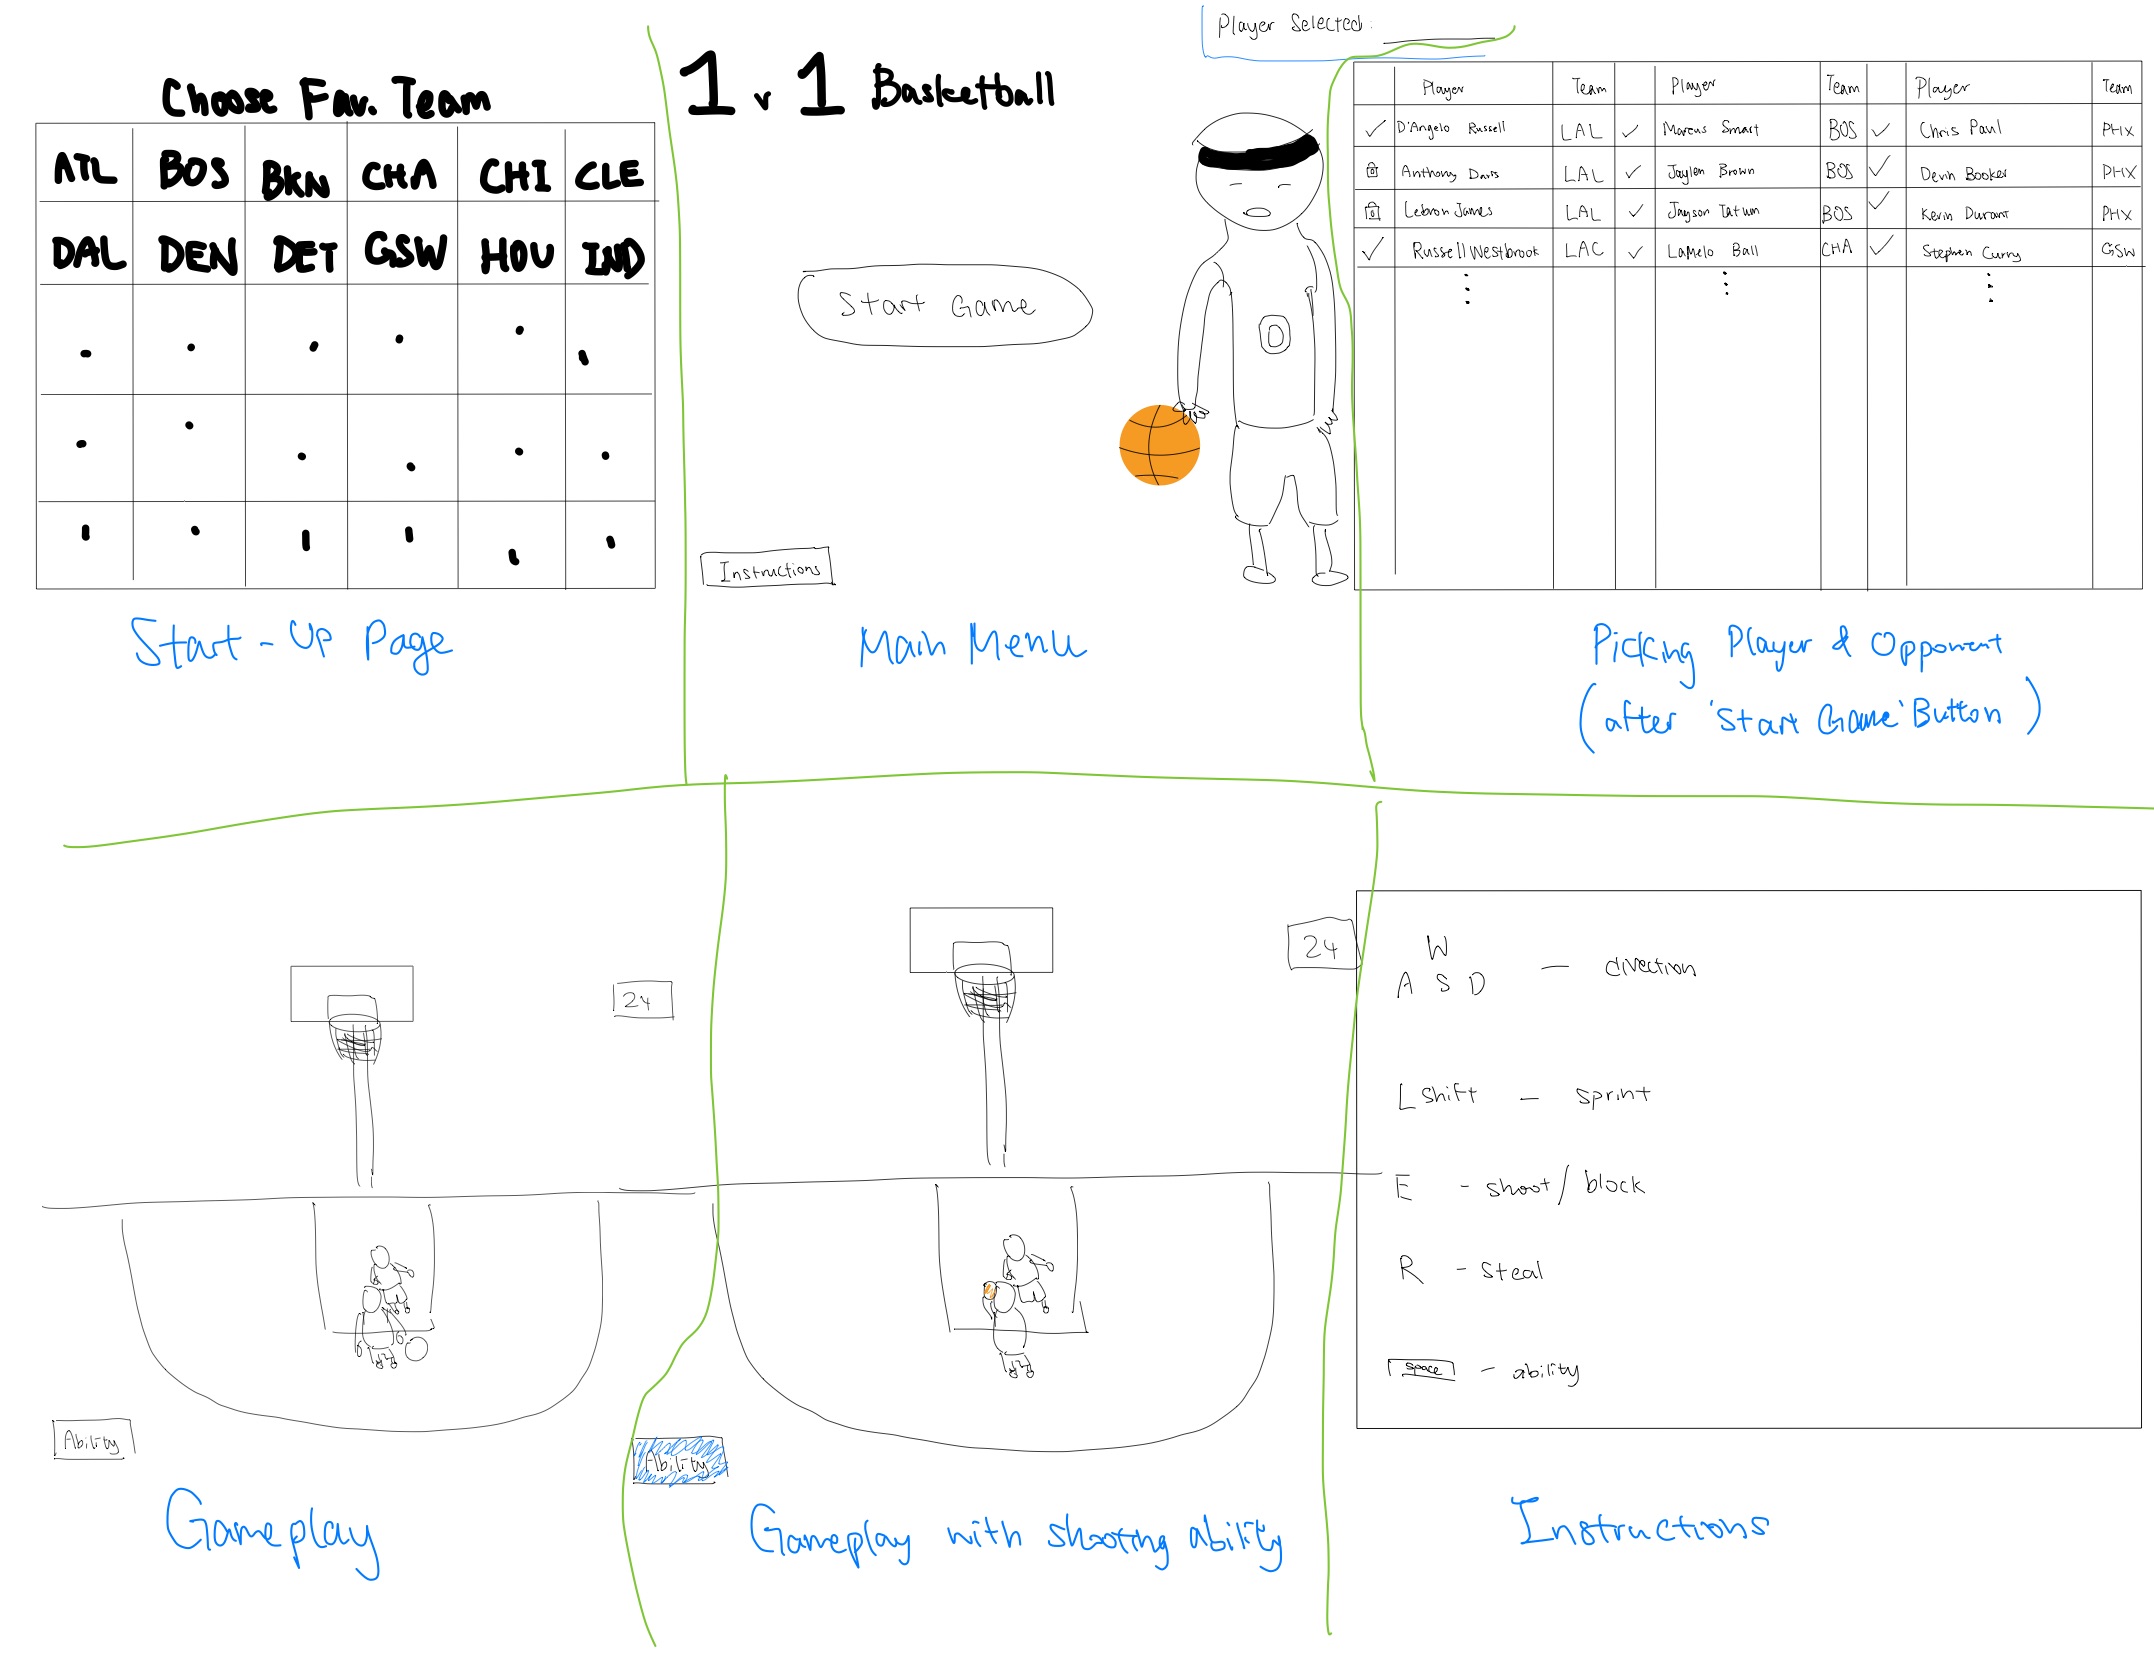 Choose Fav. Team
ATL BOS BKN CHA CHI CLE
DAL DEN DET GSW HOU IND
Start-Up Page
1 v 1 Basketball
Start Game
0
Instructions
Main Menu
Player Selected:
Player Team Player Team Player Team
✓ D'Angelo Russell LAL ✓ Marcus Smart BOS ✓ Chris Paul PHX
Anthony Davis LAL ✓ Jaylen Brown BOS ✓ Devin Booker PHX
Lebron James LAL ✓ Jayson Tatum BOS ✓ Kevin Durant PHX
✓ Russell Westbrook LAC ✓ LaMelo Ball CHA ✓ Stephen Curry GSW
Picking Player & Opponent
(after 'Start Game' Button)
24
Ability
Gameplay
24
Ability
Gameplay with shooting ability
W
A S D — direction
L shift — sprint
E - shoot/block
R - steal
space - ability
Instructions